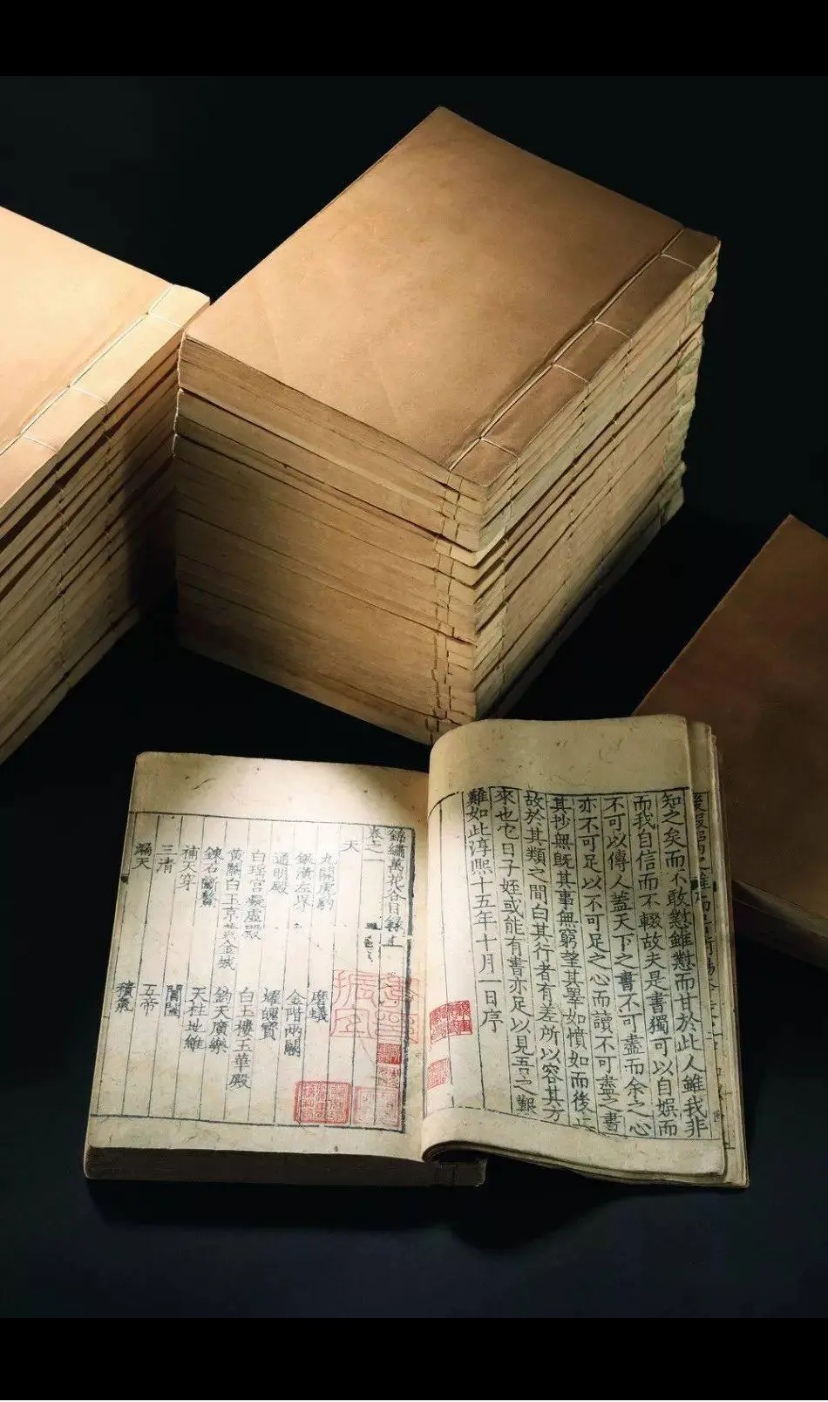 知之矣而不敢愆雖愆而甘於此人雖我非
而我自信而不輟故夫是書獨可以自娛而
不可以傳人蓋天下之書不可盡而余之心
亦不可足以不可足之心而讀不可盡之書
其抄無旣其事無窮望其擧如憤如而後止
故於其類之間白其行者有差所以容其方
來也它日子姪或能有書亦足以見吾之艱
難如此淳熈十五年十月一日序
錦繡萬花谷目錄上
卷之一
天
九關虎豹 磨蟻
銀潢左界 金階兩闕
通明殿 燿魄寳
白瑶宫凝虛殿 白玉樓玉華殿
黄麟白玉京黄金城 鈞天廣樂
鍊石斷鼇 天柱地維
補天穿 閶闔
三清 五帝
漏天 積氣